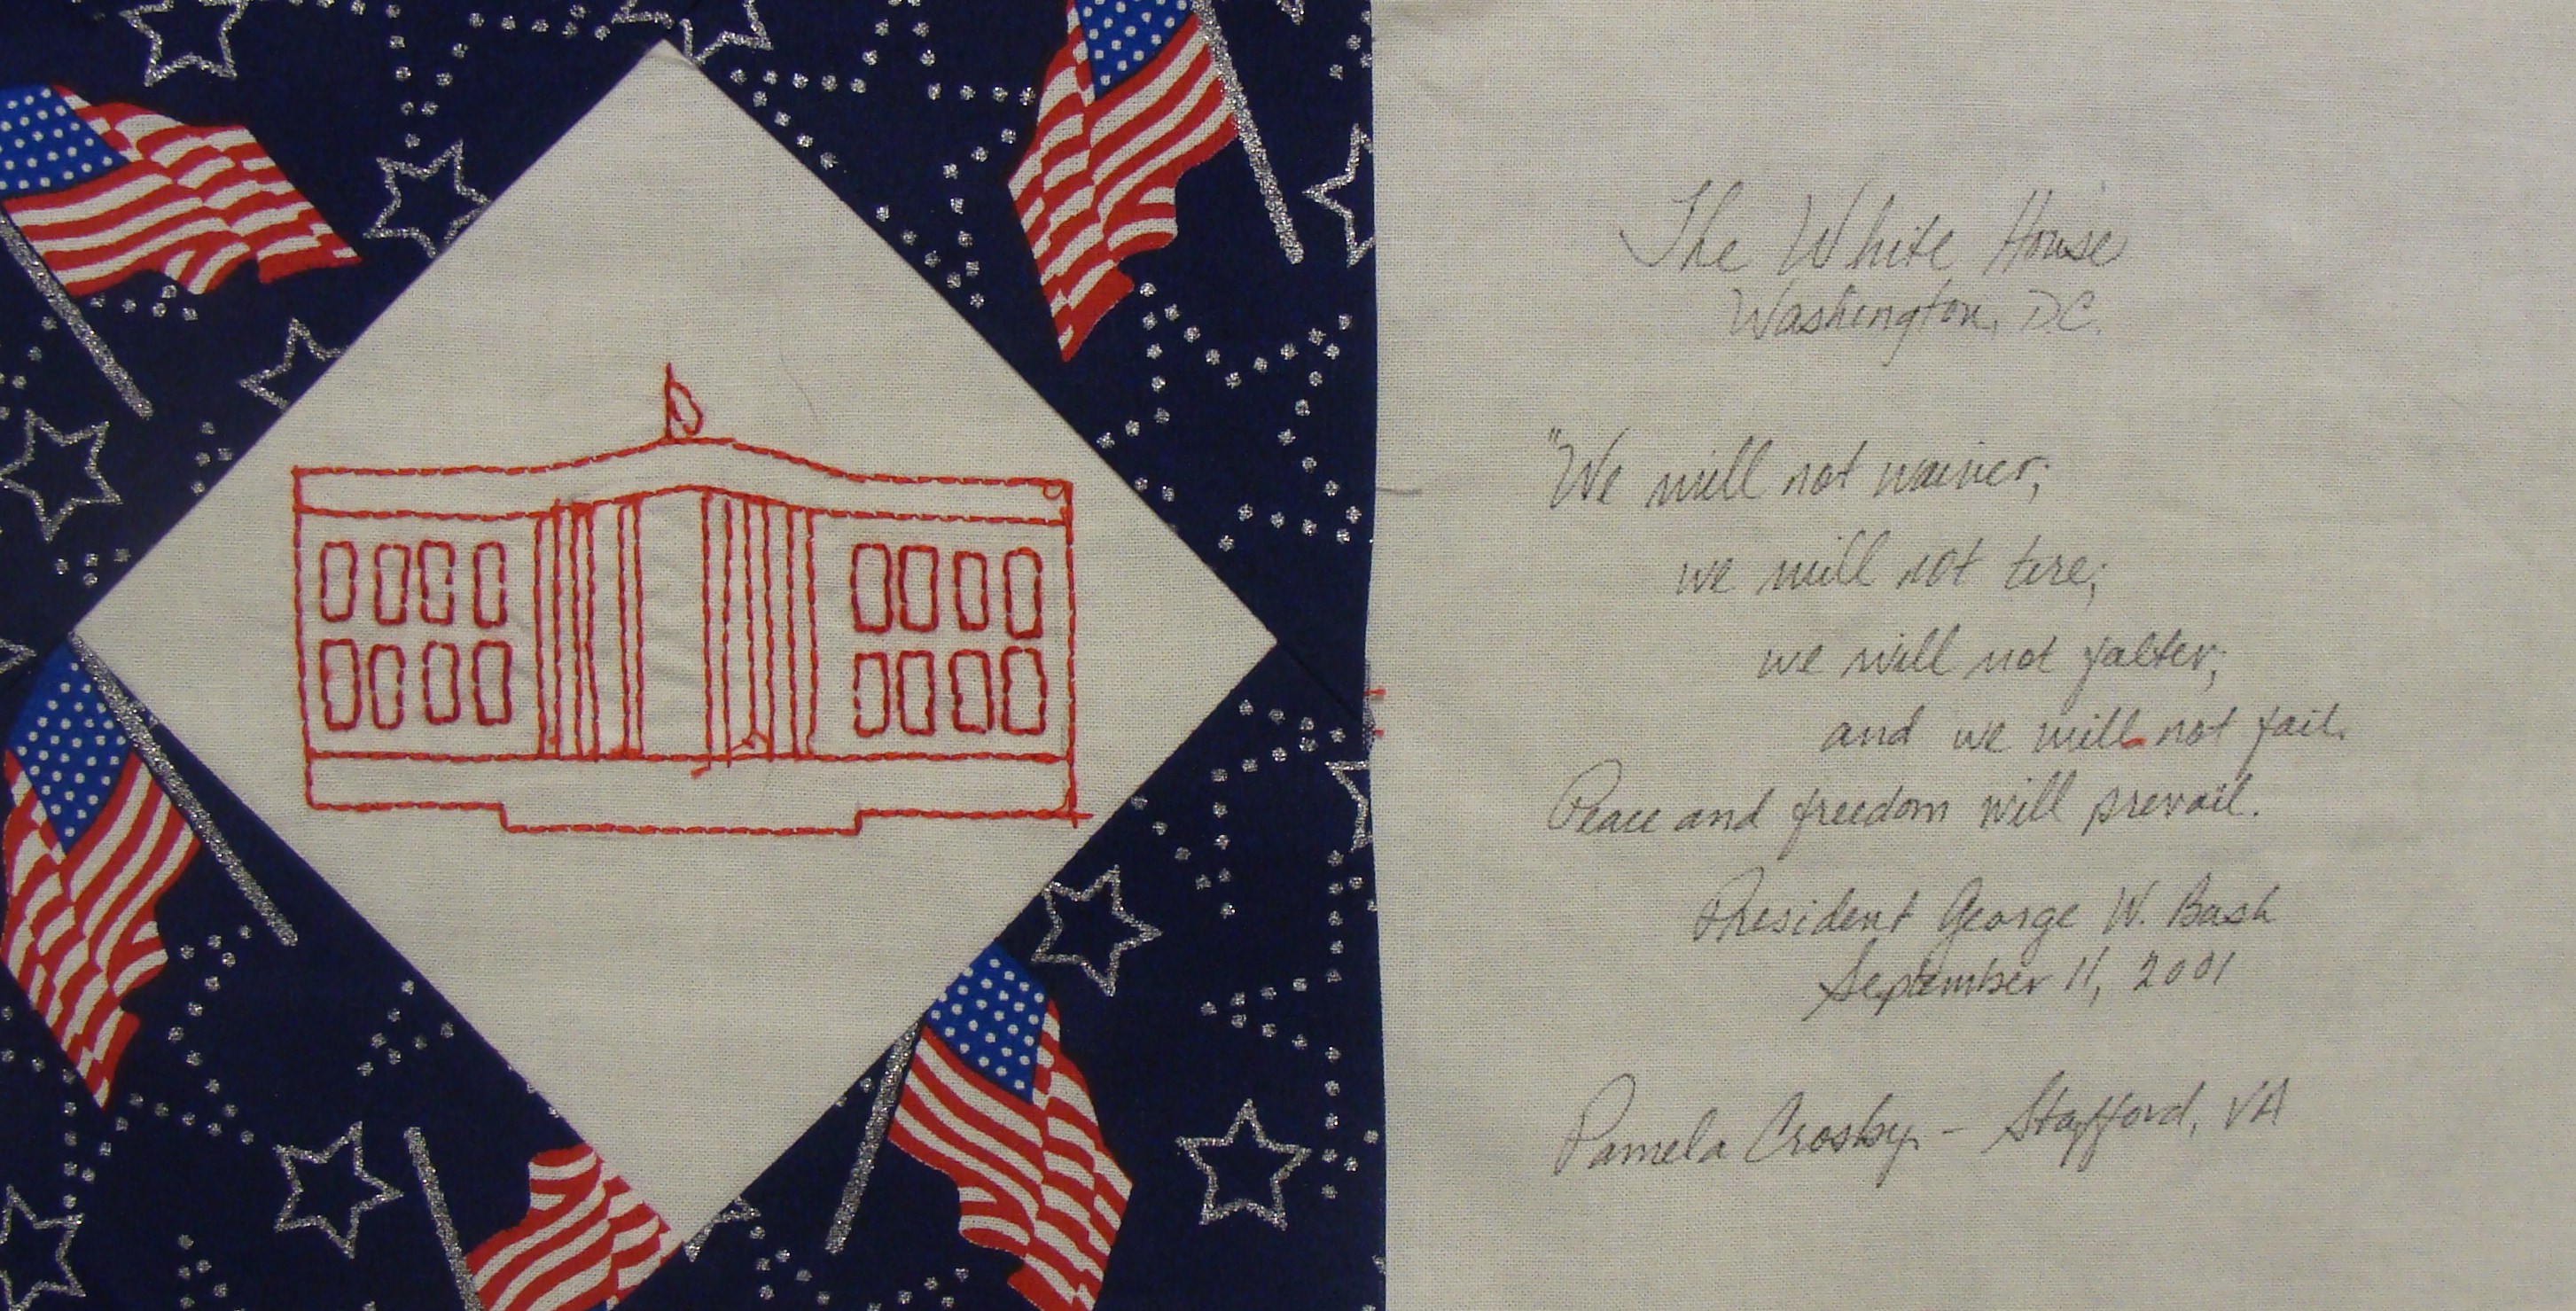 The White House
Washington, DC.
"We will not waiver;
we will not tire;
we will not falter;
and we will not fail.
Peace and freedom will prevail.
President George W. Bush
September 11, 2001
Pamela Crosby - Stafford, VA